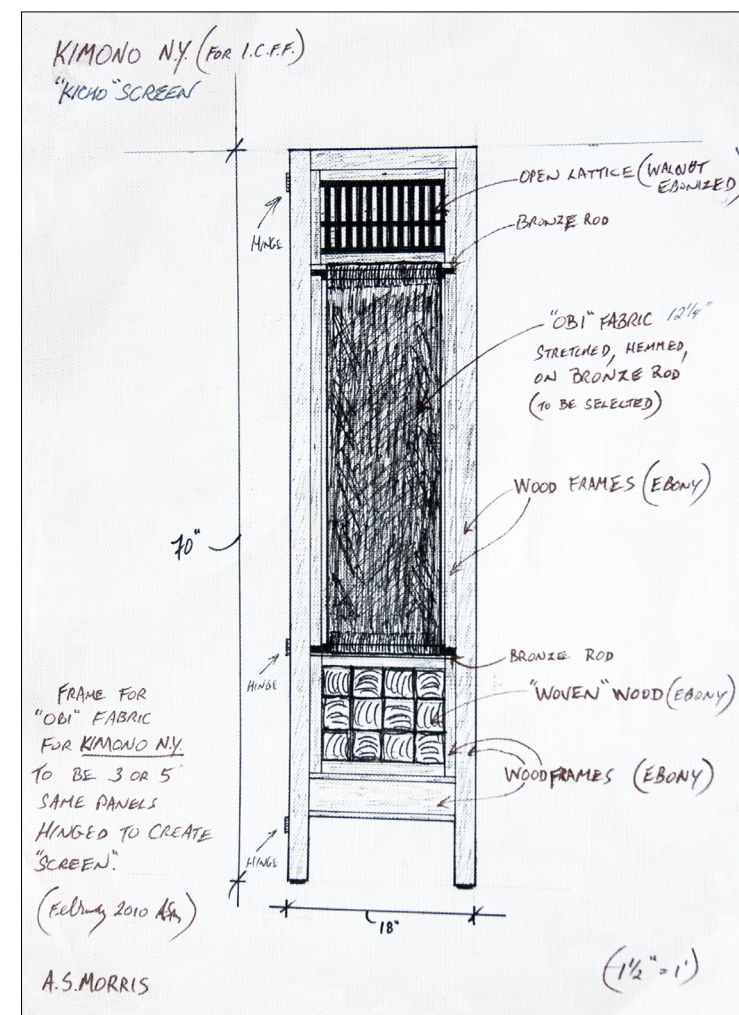 KIMONO N.Y. (FOR I.C.F.F.)
"KICHO" SCREEN
OPEN LATTICE (WALNUT
EBONIZED)
HINGE
BRONZE ROD
"OBI" FABRIC 12 1/4"
STRETCHED, HEMMED,
ON BRONZE ROD
(TO BE SELECTED)
WOOD FRAMES (EBONY)
70"
BRONZE ROD
HINGE
"WOVEN" WOOD (EBONY)
FRAME FOR
"OBI" FABRIC
FOR KIMONO N.Y.
TO BE 3 OR 5
SAME PANELS
HINGED TO CREATE
"SCREEN".
WOODFRAMES (EBONY)
HINGE
(February 2010
18"
(1 1/2" = 1')
A.S.MORRIS